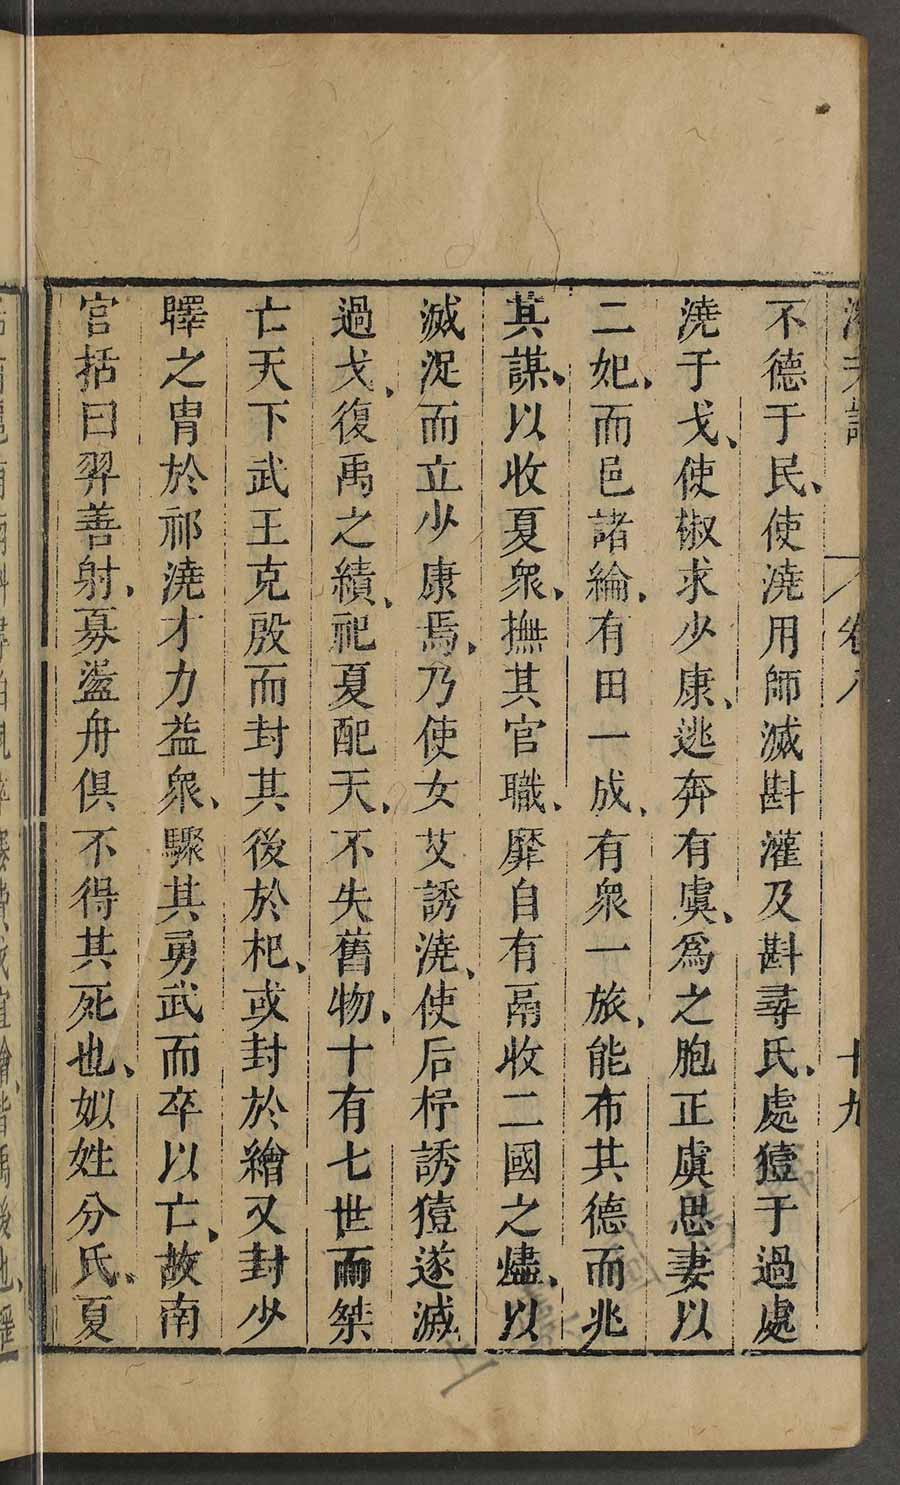 卷八 十九
不德于民、使澆用師滅斟灌及斟尋氏、處豷于過處
澆于戈、使椒求少康、逃奔有虞、爲之胞正虞思妻以
二妃、而邑諸綸、有田一成、有衆一旅、能布其德而兆
其謀、以收夏衆、撫其官職、靡自有鬲收二國之燼、以
滅浞而立少康焉、乃使女艾誘澆、使后杼誘豷遂滅
過戈、復禹之績、祀夏配天、不失舊物、十有七世而桀
亡天下武王克殷而封其後於杞、或封於繪又封少
皥之胄於祁澆才力益衆、驟其勇武而卒以亡、故南
宮括曰羿善射、奡盪舟俱不得其死也、姒姓分氏、夏